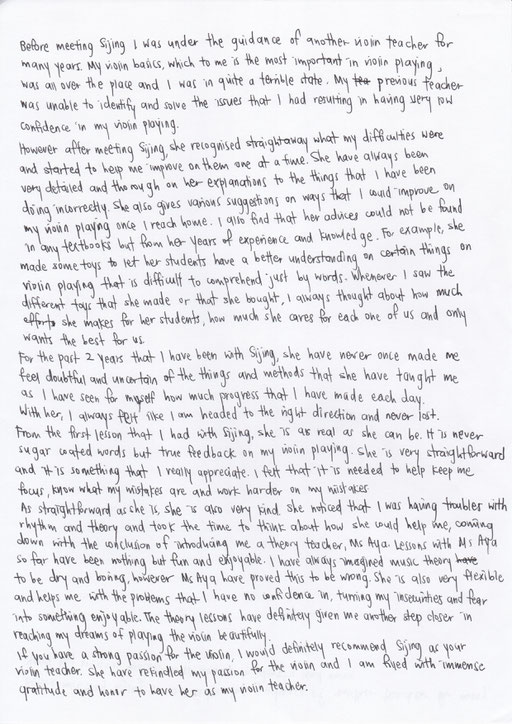 Before meeting Sijing I was under the guidance of another violin teacher for
many years. My violin basics, which to me is the most important in violin playing,
was all over the place and I was in quite a terrible state. My tea previous teacher
was unable to identify and solve the issues that I had resulting in having very low
confidence in my violin playing.
However after meeting Sijing, she recognised straightaway what my difficulties were
and started to help me improve on them one at a time. She have always been
very detailed and thorough on her explanations to the things that I have been
doing incorrectly. She also gives various suggestions on ways that I could improve on
my violin playing once I reach home. I also find that her advices could not be found
in any textbooks but from her years of experience and knowledge. For example, she
made some toys to let her students have a better understanding on certain things on
violin playing that is difficult to comprehend just by words. Whenever I saw the
different toys that she made or that she bought, I always thought about how much
efforts she makes for her students, how much she cares for each one of us and only
wants the best for us.
For the past 2 years that I have been with Sijing, she have never once made me
feel doubtful and uncertain of the things and methods that she have taught me
as I have seen for myself how much progress that I have made each day.
With her, I always felt like I am headed to the right direction and never lost.
From the first lesson that I had with Sijing, she is as real as she can be. It is never
sugar coated words but true feedback on my violin playing. She is very straightforward
and it is something that I really appreciate. I felt that it is needed to help keep me
focus, know what my mistakes are and work harder on my mistakes
As straightforward as she is, she is also very kind. She noticed that I was having troubles with
rhythm and theory and took the time to think about how she would help me, coming
down with the conclusion of introducing me a theory teacher, Ms Aya. Lessons with Ms Aya
so far have been nothing but fun and enjoyable. I have always imagined music theory have
to be dry and boring, however Ms Aya have proved this to be wrong. She is also very flexible
and helps me with the problems that I have no confidence in, turning my insecurities and fear
into something enjoyable. The theory lessons have definitely given me another step closer in
reaching my dreams of playing the violin beautifully.
If you have a strong passion for the violin, I would definitely recommend Sijing as your
violin teacher. She have rekindled my passion for the violin and I am filled with immense
gratitude and honor to have her as my violin teacher.